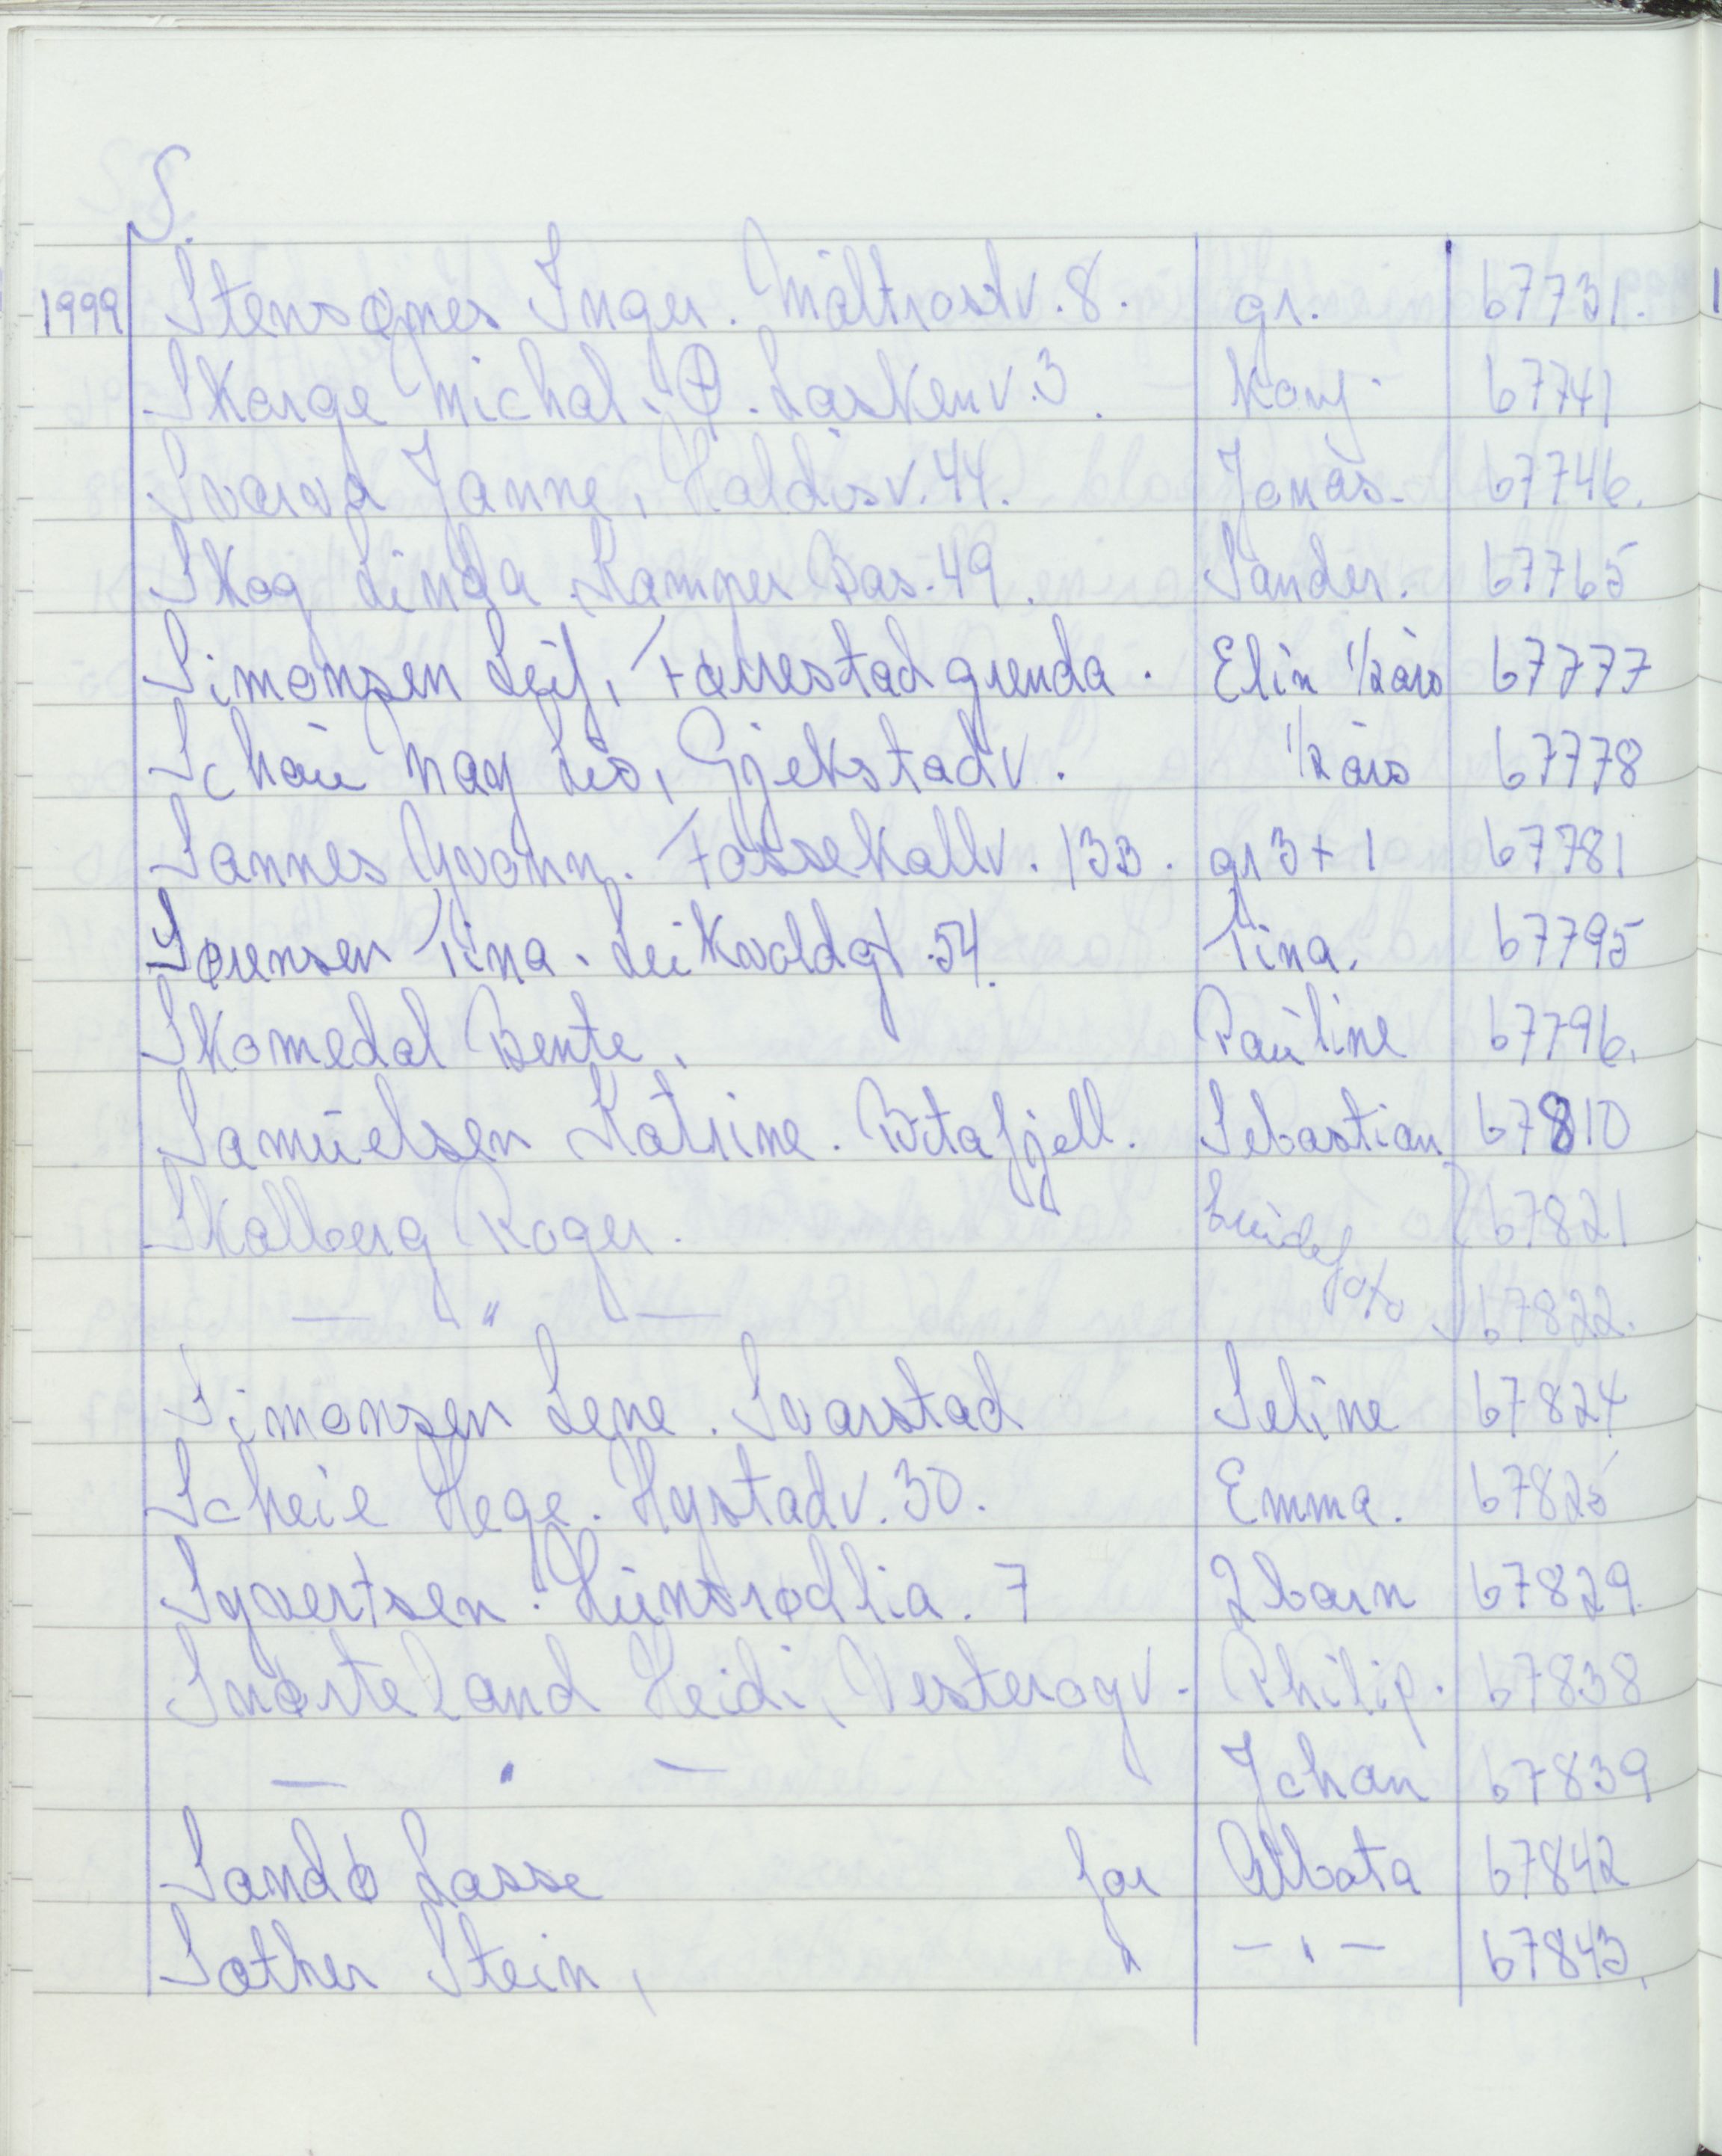 S.
1999 Stensønes Inger. Måltrostv. 8. gr. 67731.
Skarge Michal. P. Laskenv. 3. Konf. 67741
Svarva Janne, Haldisv. 44. Jonas. 67746.
Skog Linda Kamner Bas. 49. Sander. 67765
Simonsen Leif, Førrestad grenda. Elin 1/2 års 67777
Schau May Lis, Gjekstadv. 1/2 års 67778
Sannes Yvonn. Fossekallv. 13B. gr 3 + 1 67781
Sørensen Tina. Leikvoldgt. 54. Tina. 67795
Skomedal Bente. Pauline 67796.
Samuelsen Katrine. Botafjell. Sebastian 67810
Skalberg Roger. brudef 67821
— " — 67822.
Simonsen Lene. Svarstad Seline 67824
Scheie Hege. Hystadv. 30. Emma. 67825
Syvertsen. Hunsrødlia. 7 2 barn 67829.
Snørteland Heidi, Vesterøyv. Philip. 67838
— " — Johan 67839
Sandø Lasse for Albata 67842
Søther Stein, " — " — 67843.